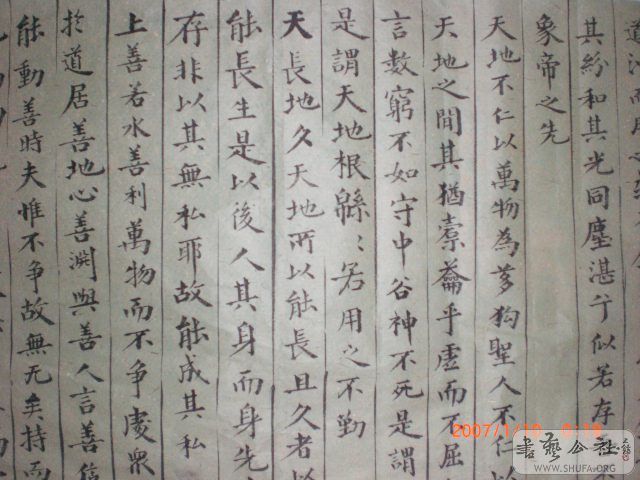 其紛和其光同塵湛兮似若存
象帝之先
天地不仁以萬物為芻狗聖人不仁以
天地之間其猶橐籥乎虛而不屈
言數窮不如守中谷神不死是謂
是謂天地根緜〻若用之不勤
天長地久天地所以能長且久者以
能長生是以後人其身而身先
存非以其無私耶故能成其私
上善若水善利萬物而不爭處眾
於道居善地心善淵與善人言善信
能動善時夫惟不爭故無尤矣持而
2007/1/10
書藝公社
WWW.SHUFA.ORG